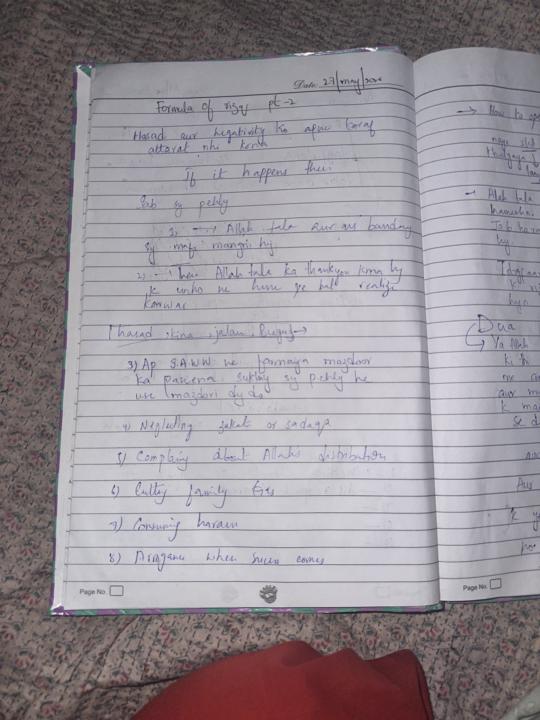 Date: 27/may/
Formula of rizq pt-2
Hasad aur negativity ko apne taraf
attarat nhi krna
If it happens then
Sab sy pehly
1) → Allah tala aur us banday
sy mafi mangni hy
2) → Then Allah tala ka thankyou krna hy
k unho ne hume ye bat realize
karwai
hasad, kina, jalan, bugz →
3) Ap S.A.W.W ne farmaya mazdoor
ka paseena sukhny sy pehly he
use mazdori dy do
4) Neglecting zakat or sadaqa
5) Complaing about Allah's distribution
6) Cutting family ties
7) Consuming haram
8) Arrogance when comes
Page No.
→ How to
→ Allah tala
hy
Dua
Ya Allah
ki
aur
k
se
Aur
k
Page No.